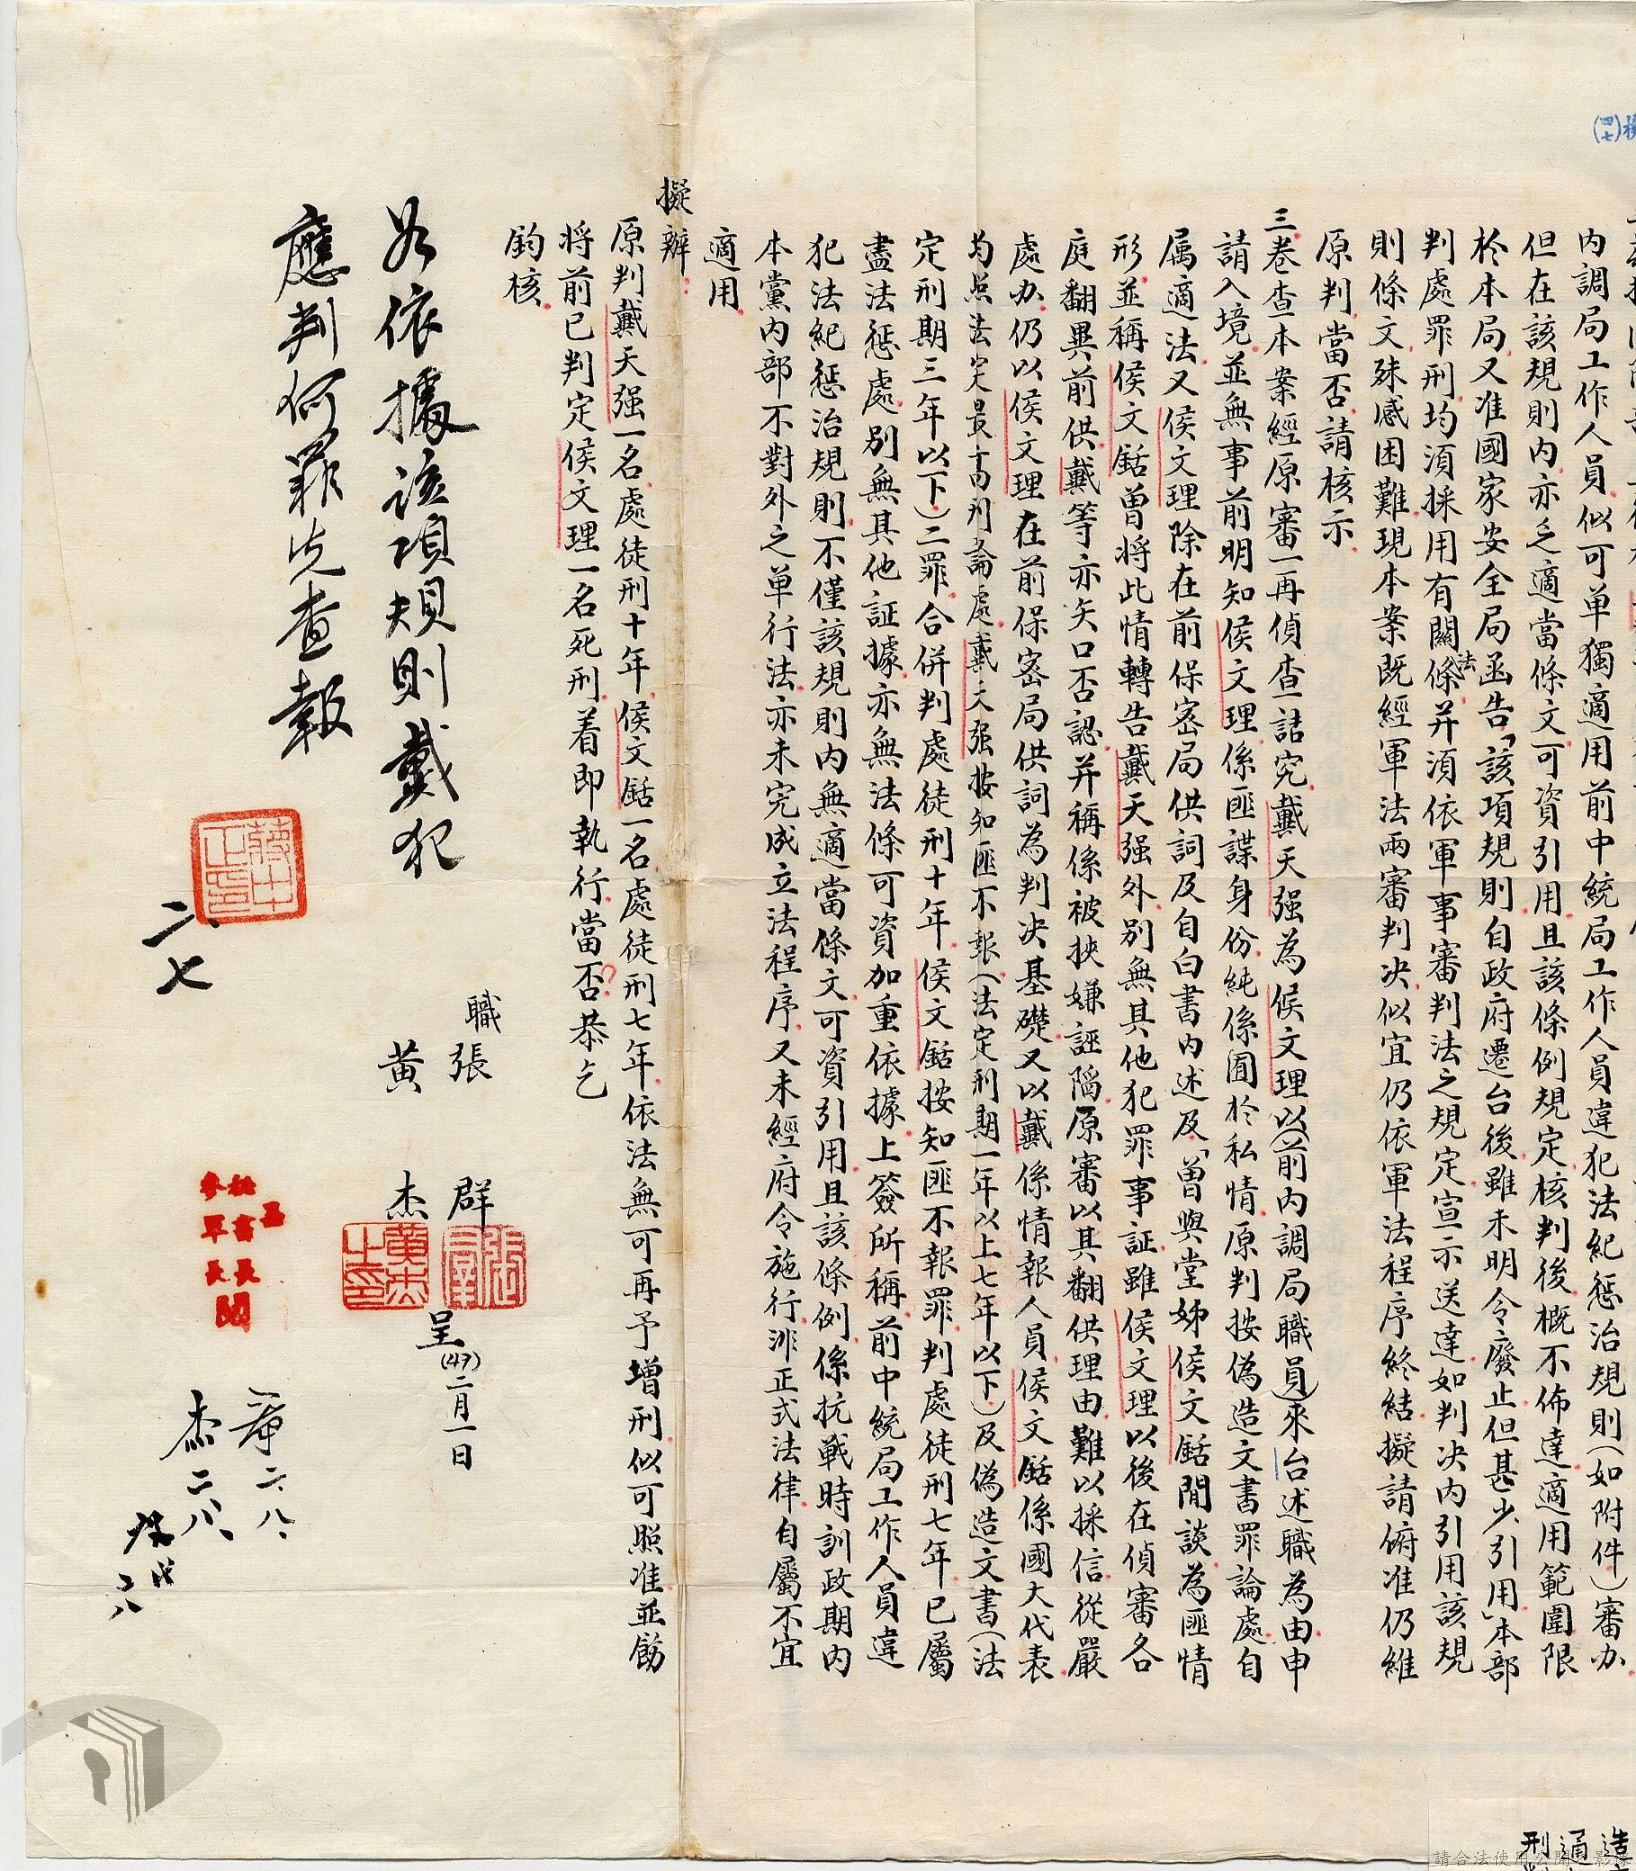 內調局工作人員似可单獨適用前中統局工作人員違犯法紀惩治規則(如附件)審办
但在該規則內亦乏適當條文可資引用且該條例規定核判後概不佈達適用範圍限
於本局又准國家安全局函告「該項規則自政府遷台後雖未明令廢止但甚少引用」本部
判處罪刑均須採用有關法條并須依軍事審判法之規定宣示送達如判决內引用該規
則條文殊感困難現本案既經軍法兩審判决似宜仍依軍法程序終結擬請俯准仍維
原判當否請核示
三卷查本案經原審一再偵查詰究戴天强為候文理以(前內調局職員)來台述職為由申
請入境並無事前明知侯文理係匪諜身份純係囿於私情原判按偽造文書罪論處自
属適法又侯文理除在前保密局供詞及自白書內述及「曾與堂姊侯文䤿閒談為匪情
形並稱侯文䤿曾將此情轉告戴天强外別無其他犯罪事証雖侯文理以後在偵審各
庭翻異前供戴等亦矢口否認并稱係被挾嫌誣陷原審以其翻供理由難以採信從嚴
處办仍以侯文理在前保密局供詞為判决基礎又以戴係情報人員侯文䤿係國大代表
均照法定最高刑論處戴天强按知匪不報(法定刑期一年以上七年以下)及偽造文書(法
定刑期三年以下)二罪合併判處徒刑十年侯文䤿按知匪不報罪判處徒刑七年已屬
盡法惩處別無其他証據亦無法條可資加重依據上簽所稱前中統局工作人員違
犯法紀惩治規則不僅該規則內無適當條文可資引用且該條例係抗戰時訓政期內
本黨內部不對外之单行法亦未完成立法程序又未經府令施行非正式法律自屬不宜
適用
擬辦：
原判戴天强一名處徒刑十年侯文䤿一名處徒刑七年依法無可再予增刑似可照准並飭
将前已判定侯文理一名死刑着即執行當否恭乞
鈞核
職張群
黃杰
呈(47)二月一日
如依據該項規則戴犯
應判何罪先查報
蔣中正印
二、七
張群
黃杰之印
秘書長
參軍長閱
二、八、
杰二八、
二八
(四七)
造
通
刑
請合法使用公開之影像